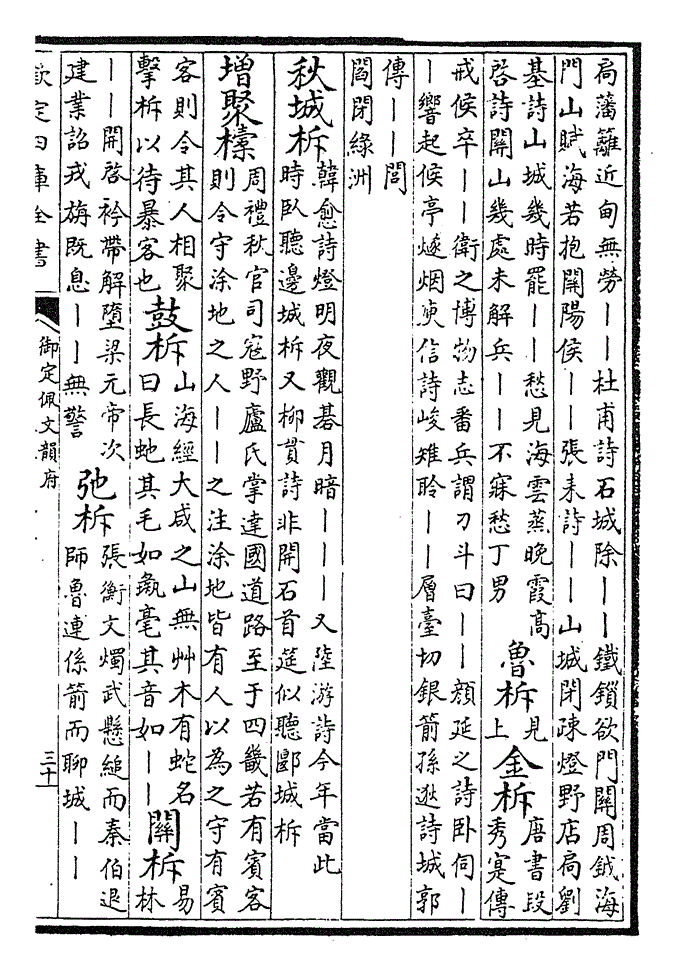 扄藩籬近甸無勞——杜甫詩石城除——鐵鎖欲門關周鉞海
門山賦海若抱關陽侯——張耒詩——山城閉疎燈野店扄劉
基詩山城幾時罷——愁見海雲蒸晚霞髙
啓詩關山幾處未解兵——不寐愁丁男
魯柝
見
上
金柝
唐書段
秀寔傳
戒候卒——衛之博物志番兵謂刁斗曰——顔延之詩卧伺—
—響起候亭燧烟庾信詩峻雉聆——層臺切銀箭孫逖詩城郭
傳——閭
閻閉綠洲
秋城柝
韓愈詩燈明夜觀碁月暗———又陸游詩今年當此
時卧聽邊城柝又栁貫詩非開石首莚似聽郢城柝
增聚㯓
周禮秋官司寇野廬氏掌達國道路至于四畿若有賓客
則令守涂地之人——之注涂地皆有人以為之守有賓
客則令其人相聚
擊柝以待暴客也
鼓柝
山海經大咸之山無艸木有蛇名
曰長虵其毛如彘毫其音如——
關柝
易
林
——開啓衿帶解墮梁元帝次
建業詔戎旃既息——無警
弛柝
張衡文燭武懸縋而秦伯退
師魯連係箭而聊城——
欽定四庫全書
御定佩文韻府
三十